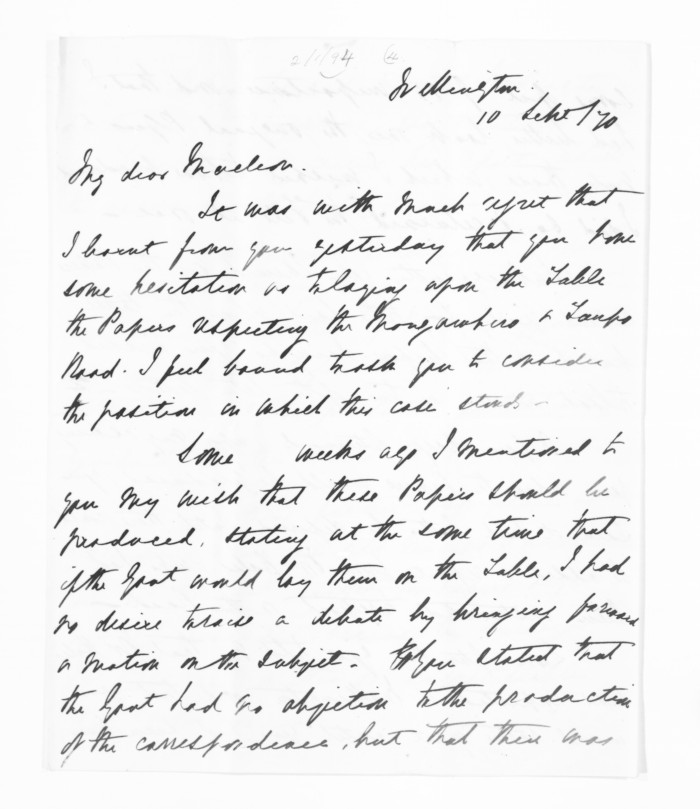 Wellington.
10 Sept /70
My dear McLean.
It was with much regret that
I learnt from you yesterday that you have
some hesitation as to laying upon the Table
the Papers respecting the to Taupo
Road. I feel bound to ask you to consider
the position in which this case stands -
Some weeks ago I mentioned to
you my wish that these Papers should be
produced, stating at the same time that
if the Govt would lay them on the Table, I had
no desire to raise a debate by bringing forward
a motion on the subject. You stated that
the Govt had no objection to the production
of the correspondence, but that there was